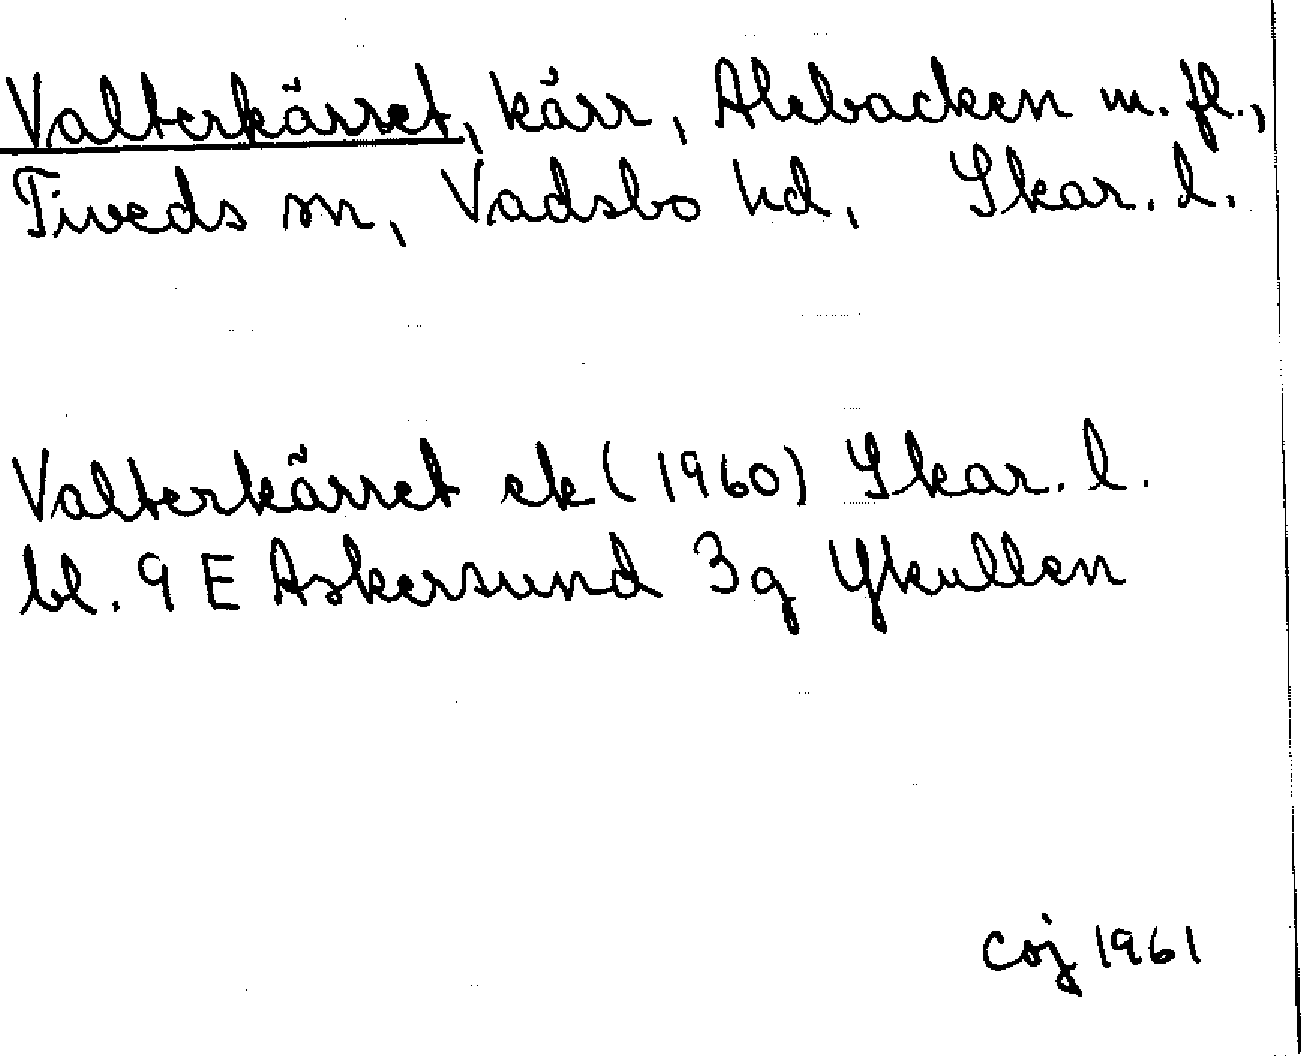 Valterkärret, kärr, Alebacken m. fl.,
Tiveds sn, Vadsbo hd, Skar. l.
Valterkärret ek (1960) Skar. l.
bl. 9 E Askersund 3g Ykullen
Coj 1961